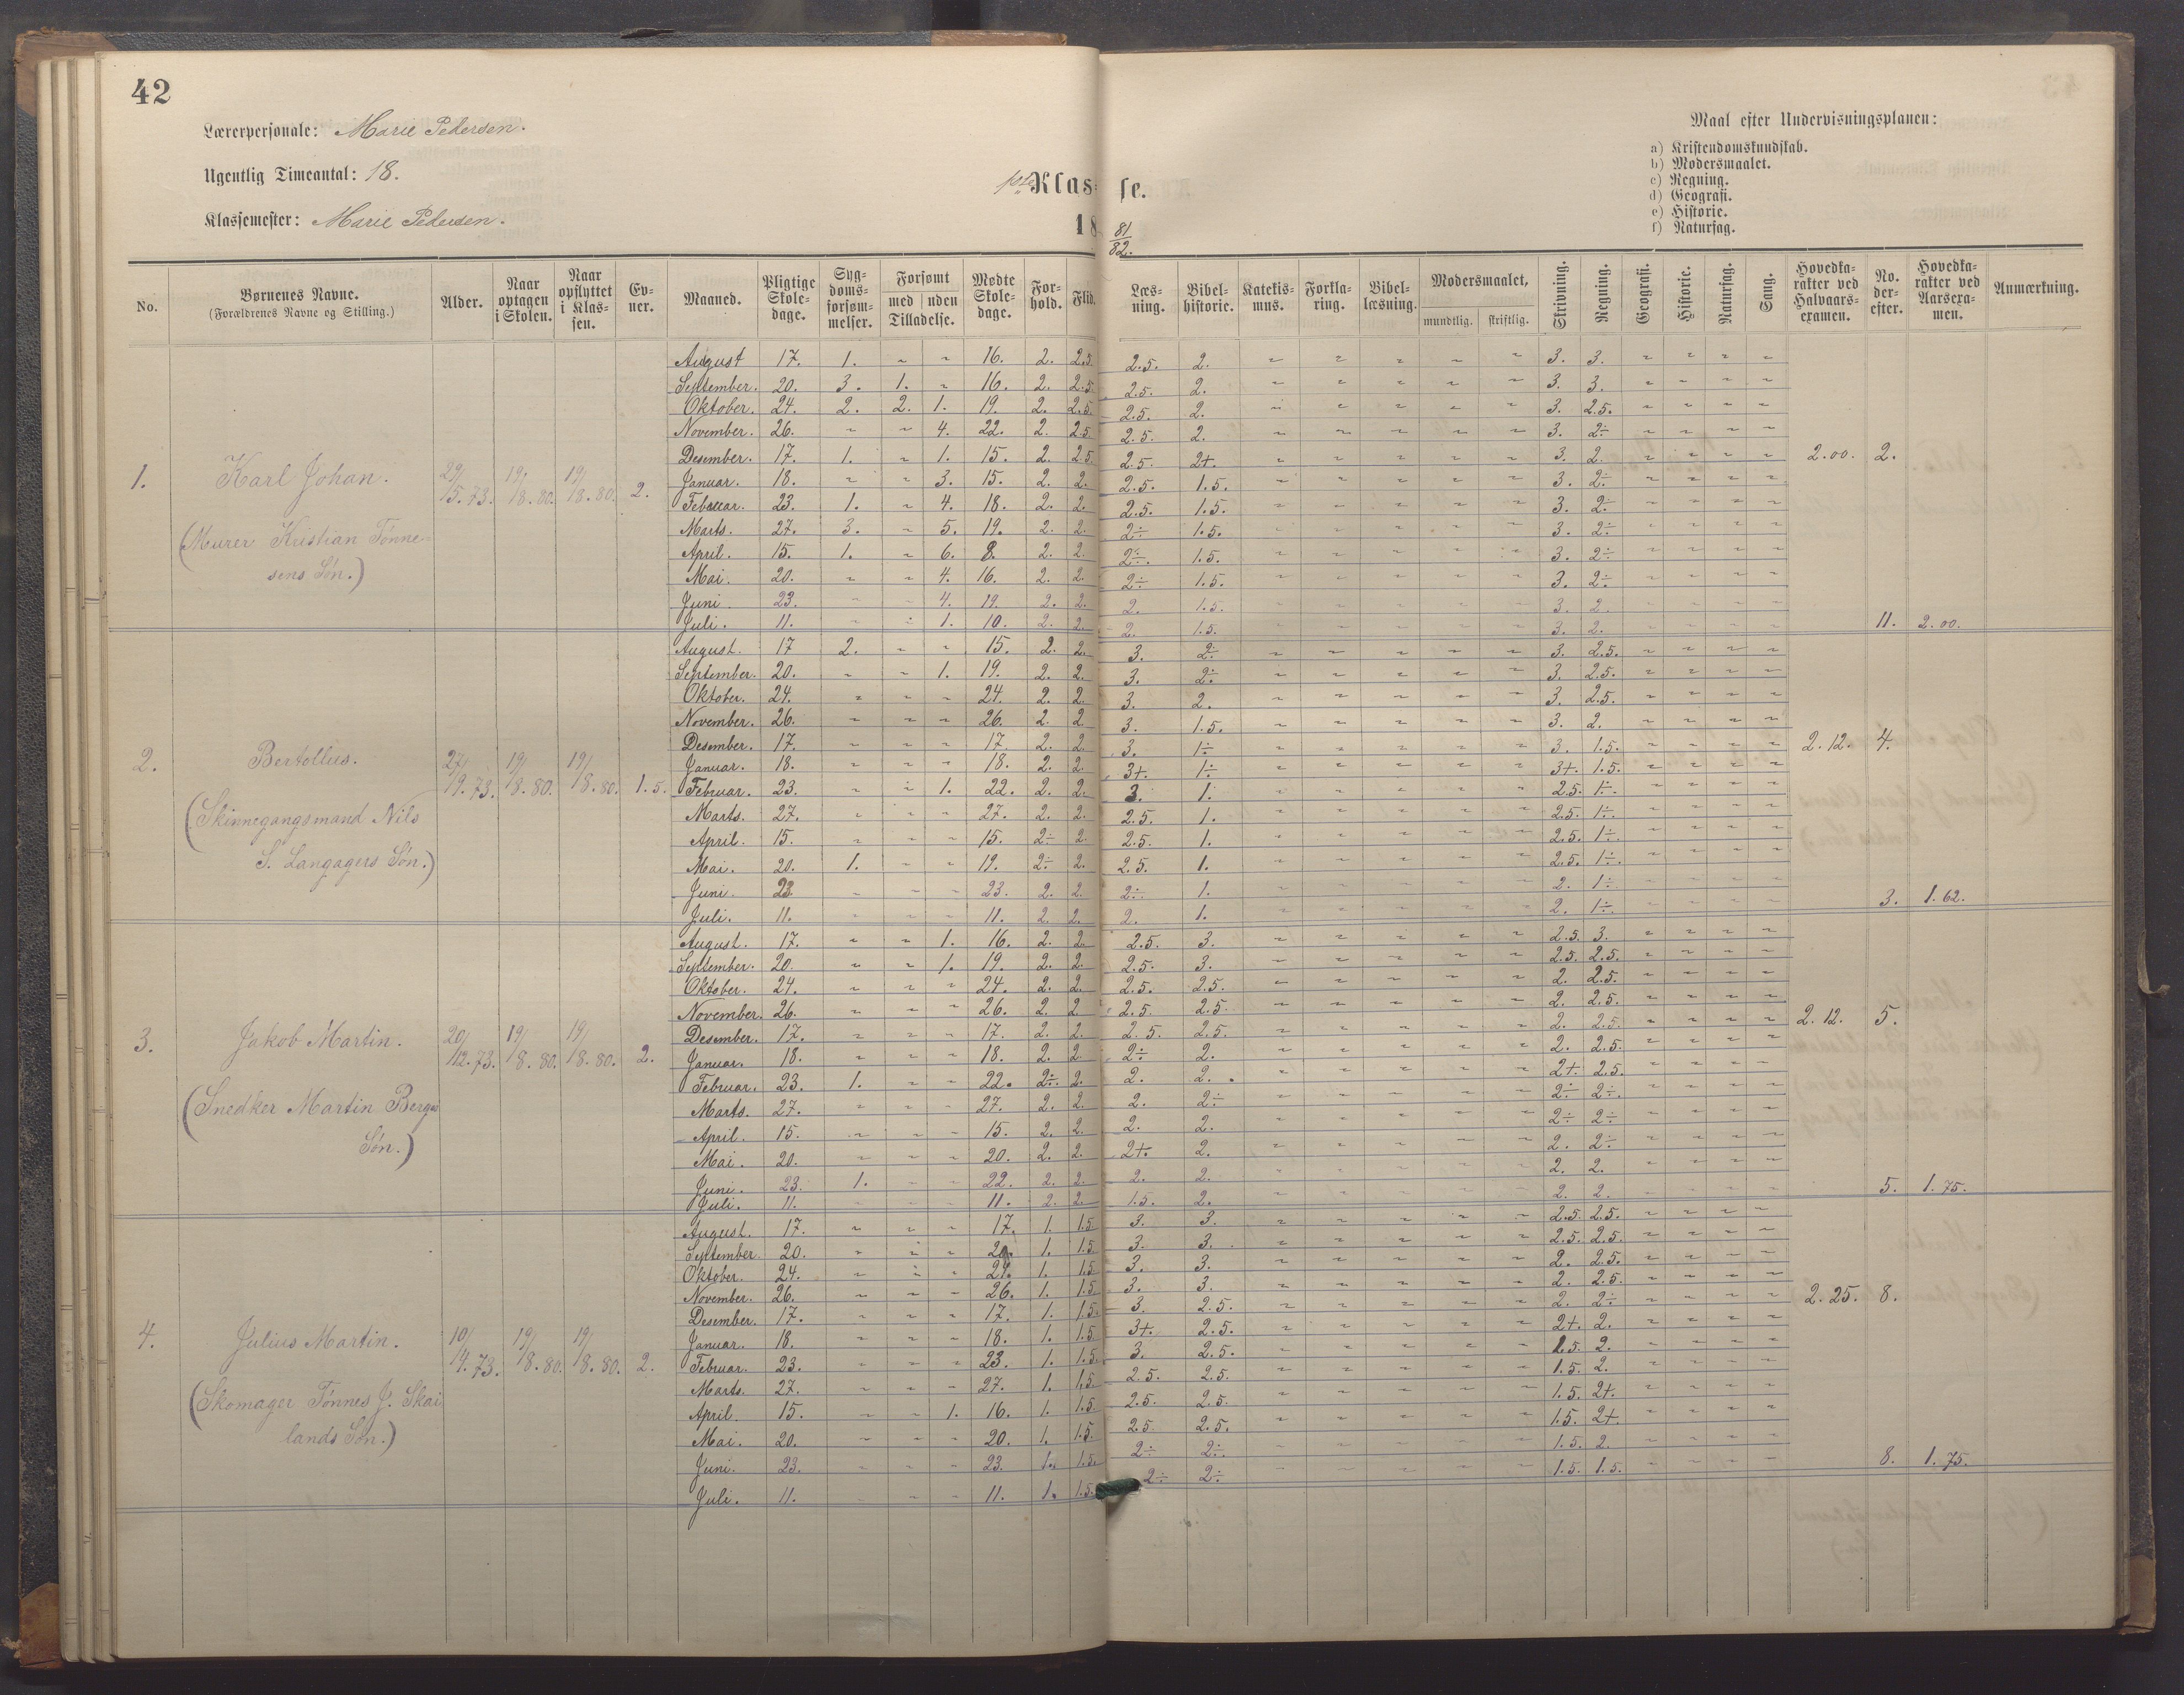 42
Lærerpersonale: Marie Pedersen.
Ugentlig Timeantal: 18.
Klassemester: Marie Pedersen.
1ste Klasse.
18 81/82.
Maal efter Undervisningsplanen:
a) Kristendomskundskab.
b) Modersmaalet.
c) Regning.
d) Geografi.
e) Historie.
f) Naturfag.
No. | Børnenes Navne. (Forældrenes Navne og Stilling.) | Alder. | Naar optagen i Skolen. | Naar opflyttet i Klassen. | Evner. | Maaned. | Pligtige Skoledage. | Sygdomsforsømmelser. | Forsømt med Tilladelse. | Forsømt uden Tilladelse. | Mødte Skoledage. | Forhold. | Flid. | Læsning. | Bibelhistorie. | Katekismus. | Forklaring. | Bibellæsning. | Modersmaalet, mundtlig. | skriftlig. | Skrivning. | Regning. | Geografi. | Historie. | Naturfag. | Sang. | Hovedkarakter ved Halvaarsexamen. | No. derefter. | Hovedkarakter ved Aarsexamen. | Anmærkning.
1. Karl Johan. 29/15.73. 19/18.80. 19/18.80. 2.
(Murer Kristian Tønnesens Søn.)
August 17. 1. " " 16. 2. 2.5. 2.5. 2. " " " " " 3. 3. " " " "
September. 20. 3. 1. " 16. 2. 2.5. 2.5. 2. " " " " " 3. 3. " " " "
Oktober. 24. 2. 2. 1. 19. 2. 2.5. 2.5. 2. " " " " " 3. 2.5. " " " "
November. 26. " " 4. 22. 2. 2.5 2.5. 2. " " " " " 3. 2÷ " " " "
Desember. 17. 1. " 1. 15. 2. 2.5. 2.5. 2+. " " " " " 3. 2. " " " " 2.00. 2.
Januar. 18. " " 3. 15. 2. 2. 2.5. 1.5. " " " " " 3. 2÷ " " " "
Februar. 23. 1. " 4. 18. 2. 2. 2.5. 1.5. " " " " " 3. 2÷ " " " "
Marts. 27. 3. " 5. 19. 2. 2. 2÷ 1.5. " " " " " 3. 2÷ " " " "
April. 15. 1. " 6. 8. 2. 2. 2÷. 1.5. " " " " " 3. 2÷ " " " "
Mai. 20. " " 4. 16. 2. 2. 2÷ 1.5. " " " " " 3. 2÷ " " " "
Juni. 23. " " 4. 19. 2. 2. 2. 1.5. " " " " " 3. 2. " " " "
Juli. 11. " " 1. 10. 2. 2. 2. 1.5. " " " " " 3. 2. " " " " 11. 2.00.
2. Bertollus. 27/9.73. 19/8.80. 19/8.80. 1.5.
(Skinnegangsmand Nils S. Langagers Søn.)
August. 17 2. " " 15. 2. 2. 3. 2÷ " " " " " 3. 2.5. " " " "
September. 20. " " 1. 19. 2. 2. 3. 2÷ " " " " " 3. 2.5. " " " "
Oktober. 24. " " " 24. 2. 2. 3. 2. " " " " " 3. 2.5. " " " "
November. 26. " " " 26. 2. 2. 3. 1.5. " " " " " 3. 2. " " " "
Desember. 17. " " " 17. 2. 2. 3. 1÷ " " " " " 3. 1.5. " " " " 2.12. 4.
Januar. 18. " " " 18. 2. 2. 3+. 1÷ " " " " " 3+. 1.5. " " " "
Februar. 23. " " 1. 22. 2. 2. 3. 1. " " " " " 2.5. 1÷. " " " "
Marts. 27. " " " 27. 2. 2. 2.5. 1. " " " " " 2.5. 1÷. " " " "
April. 15. " " " 15. 2÷ 2. 2.5. 1. " " " " " 2.5. 1÷. " " " "
Mai. 20. 1. " " 19. 2÷ 2. 2.5. 1. " " " " " 2.5. 1÷. " " " "
Juni. 23 " " " 23. 2. 2. 2÷ 1. " " " " " 2. 1÷ " " " "
Juli. 11. " " " 11. 2. 2. 2. 1. " " " " " 2. 1÷. " " " " 3. 1.62.
3. Jakob Martin. 20/12.73. 19/8.80. 19/8.80. 2.
(Snedker Martin Bergs Søn.)
August. 17. " " 1. 16. 2. 2. 2.5. 3. " " " " " 2.5. 3. " " " "
September. 20. " " 1. 19. 2. 2. 2.5. 3. " " " " " 2.5. 2.5. " " " "
Oktober. 24. " " " 24. 2. 2. 2.5. 2.5. " " " " " 2. 2.5. " " " "
November. 26. " " " 26. 2. 2 2.5. 2.5. " " " " " 2. 2.5. " " " "
Desember. 17. " " " 17. 2. 2. 2.5. 2.5. " " " " " 2. 2.5. " " " " 2.12. 5.
Januar. 18. " " " 18. 2. 2. 2÷ 2. " " " " " 2. 2.5. " " " "
Februar. 23. 1. " " 22. 2÷. 2. 2. 2. " " " " " 2+. 2.5. " " " "
Marts. 27. " " " 27. 2. 2. 2. 2÷ " " " " " 2÷ 2÷. " " " "
April. 15. " " " 15. 2. 2. 2. 2. " " " " " 2÷ 2÷ " " " "
Mai. 20. " " " 20. 2. 2. 2+. 2. " " " " " 2. 2÷ " " " "
Juni. 23. 1. " " 22. 2. 2. 2. 2. " " " " " 2. 2. " " " "
Juli. 11. " " " 11. 2. 2. 1.5. 2. " " " " " 2. 2. " " " " 5. 1.75.
4. Julius Martin. 10/4.73. 19/8.80. 19/8.80. 2.
(Skomager Tønnes J. Skailands Søn.)
August. 17. " " " 17. 1. 1.5 3. 3. " " " " " 2.5. 2.5. " " " "
September. 20. " " " 20. 1. 1.5 3. 3. " " " " " 2.5. 2.5. " " " "
Oktober. 24. " " " 24. 1. 1.5 3. 3. " " " " " 2. 2.5. " " " "
November. 26. " " " 26. 1. 1.5 3. 3. " " " " " 2. 2.5. " " " "
Desember. 17. " " " 17. 1. 1.5. 3. 2.5. " " " " " 2. 2÷ " " " " 2.25. 8.
Januar. 18. " " " 18. 1. 1.5. 3+. 2.5. " " " " " 2+. 2. " " " "
Februar. 23. " " " 23. 1. 1.5. 3. 2.5. " " " " " 1.5. 2. " " " "
Marts. 27. " " " 27. 1. 1.5. 2.5. 2.5. " " " " " 1.5. 2. " " " "
April. 15. " " 1. 16. 1. 1.5. 2.5. 2.5. " " " " " 1.5. 2+. " " " "
Mai. 20. " " " 20. 1. 1.5. 2.5. 2.5. " " " " " 1.5. 2+. " " " "
Juni. 23. " " " 23. 1. 1.5. 2÷ 2÷. " " " " " 1.5. 2. " " " "
Juli. 11. " " " 11. 1. 1.5. 2÷ 2÷. " " " " " 1.5. 1.5. " " " " 8. 1.75.